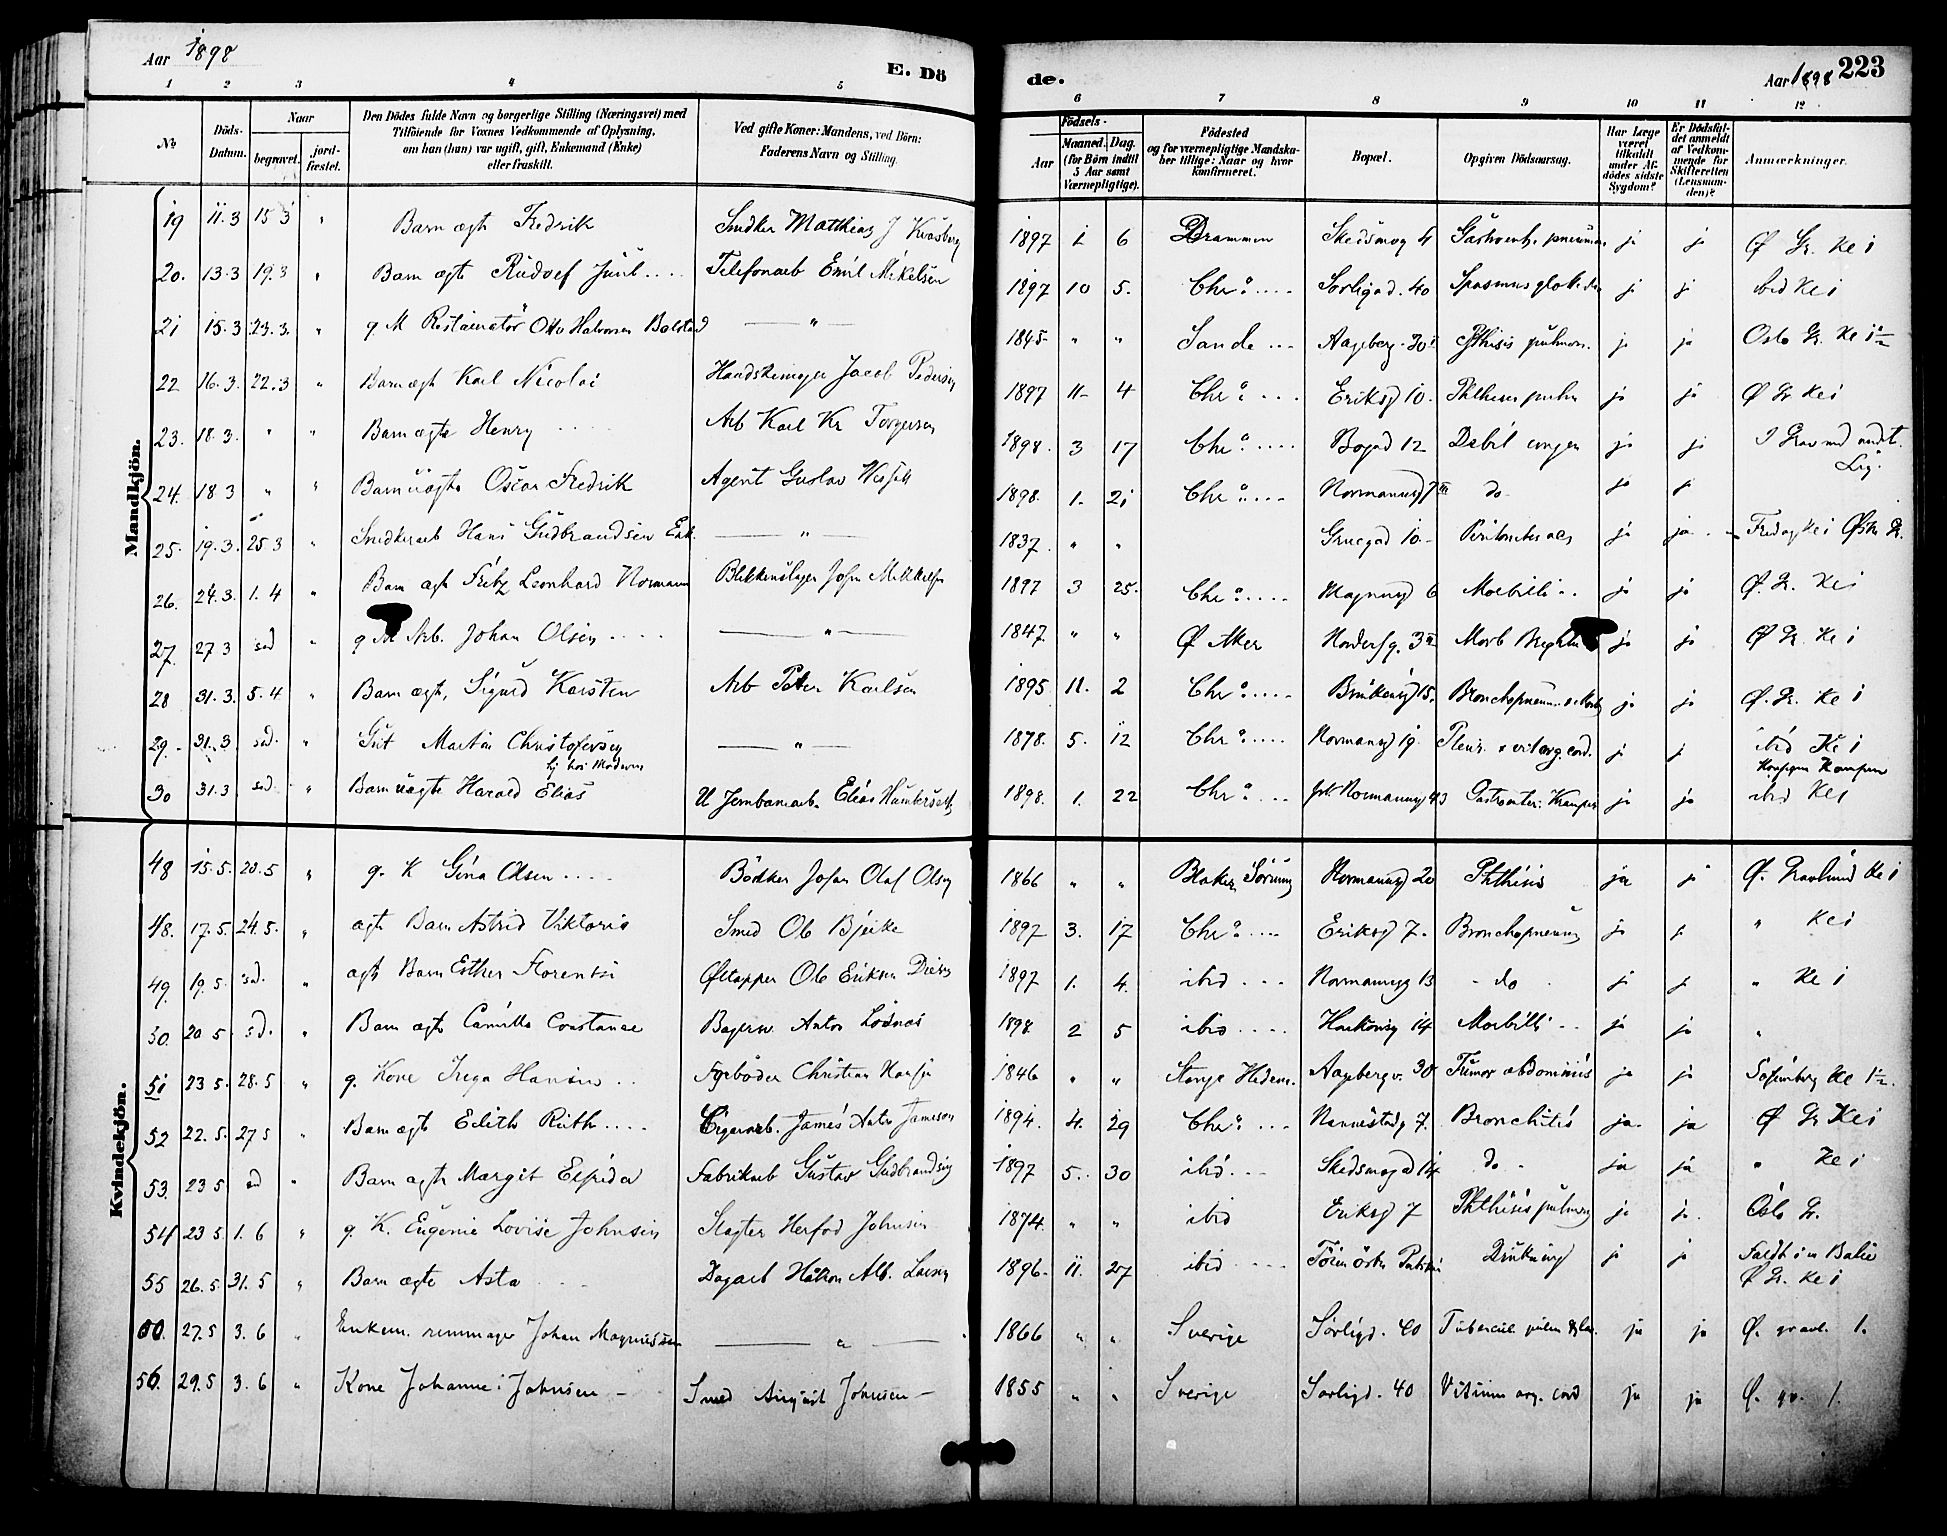 Aar 1898
E. Dö
de.
Aar 1898 223
1 2 3 4 5 6 7 8 9 10 11 12
No
Döds-Datum.
Naar
begravet.
jordfæstet.
Den Dödes fulde Navn og borgerlige Stilling (Næringsvei) med Tilföiende for Voxnes Vedkommende af Oplysning, om han (hun) var ugift, gift, Enkemand (Enke) eller fraskilt.
Ved gifte Koner: Mandens, ved Börn: Faderens Navn og Stilling.
Födsels-
Aar
Maaned. Dag.
(for Börn indtil 5 Aar samt Værnepligtige).
Födested og for værnepligtige Mandskaber tillige: Naar og hvor konfirmeret.
Bopæl.
Opgiven Dödsaarsag.
Har Læge været tilkaldt under Afdödes sidste Sygdom?
Er Dödsfaldet anmeldt af Vedkommende for Skifteretten (Lensmanden)?
Anmærkninger.
Mandkjön.
19 11.3 15 3 " Barn ægte Fredrik Snedker Matthias J 1897 1 6 Drammen Skedsmog 4 ja ja Ø Gr. Kl 1
20. 13.3 19.3 " Barn ægte Rudolf Juul .... Telefonarb Emil Mikelsen 1897 10 5. Chr.a .... Sorligad. 40 Spasmus ja ja ibid Kl 1
21 15.3 23.3. " g. M Restauratør Otto Halvorsen " 1845 " " Sande ... Aageberg. 30 Phthisis pulmon. ja ja Oslo Gr. Kl 1½
22 16.3. 22.3 " Barn ægte Karl Nicolai Handskemager Jacob Pedersen 1897 11 4 Chr.a ... Eriksg 10. Phthisis pulm ja ja Ø Gr Kl 1
23. 18.3. " " Barn ægte Henry .... Arb Karl Kr Torgersen 1898. 3 17 Chr.a .... Bogad 12 Debil congen ja ja I Grav med andt. Lig.
24. 18 3 " " Barn uægte Oscar Fredrik Agent Gustav 1898. 1. 21 Chr.a .... Normannsg 7 do. ja ja
25. 19.3. 25 3 " Snedkerarb Hans Gudbrandsen Enk. " 1837. " " Gruegad 10. ja ja Fredag Kl 1 Østr Gr.
26. 24.3. 1.4 " Barn ægte Fritz Leonhard Normann Blikkenslager John Mikkelsen 1897 3 25. Chr.a .... Magnusg 6 Morbilli .. ja ja Ø. Gr. Kl 1
27. 27 3 sad " g M Arb. Johan Olsen .... " 1847. " " Ø Aker 3 Morb Brightii ja ja Ø Gr Kl 1
28 31.3. 5.4 " Barn ægte, Sigurd Karsten Arb Peter Karlsen 1895 11. 2 Chr.a .... 15. Bronchopneum. ja ja Ø. Gr. Kl 1
29. 31.3. sad. " Gut Martin Christofersen hj hos Moderen " 1878. 5. 12 Chr.a .... Normansg 19. Pleur. & vit org. cord. ja j ibid Kl 1
30 31.3 sad " Barn uægte Harald Elias U Jernbanearb. Elias 1898. 1. 22 Chr.a ... Normannsg 43 Gastroenter. Kramper ja ja ibid Kl 1
Kvindekjön.
48 15.5. 20.5 " g. K Gina Olsen .... Bödker Johan Olaf Olsen 1866 " " Blaker Sørum Normannsg 20 Phthisis ja j Ø. Gravlund Kl 1
48. 17.5. 24.5. " ægte Barn Astrid Viktoria Smed Ole Bjerke 1897 3. 17 Chr.a .... Eriksg 7. Bronchopneumo ja j. " Kl 1
49. 19.5. sad. " ægte Barn Esther Florentine Øltapper Ole Eriksen 1897 1. 4. ibid ... Normannsg 13 - do ja j " Kl 1
50. 20 5. sd. " Barn ægte Camilla Constance Bagersv. Anton Lødnæs 1898 2 5 ibid .... Haakonsg 14 Morbilli .. ja ja "
51 23 5. 28.5 " g. Kone Inga Hansen .. Fyrbøder Christian Hansen 1846 " " Stange Hedem. Aageberg v. 30 Tumor abdominis ja ja Sofienberg Kl 1½.
52 22.5. 27 5 " Barn ægte Edith Ruth .... Cigararb. James Anton Jameson 1894. 4. 29 Chr.a ... Nannestadg 7. Bronchitis ja. ja Ø Gr Kl 1
53. 23 5 sd " Barn ægte Margit Elfrida Fabrikarb Gustav Gudbrandsen 1897 5. 30 ibid ... Skedsmogd 14 do. ja ja " Kl 1
54 23 5. 1. 6 " g. K. Eugenie Lovise Johnsen Slagter Herfod Johnsen 1874. " " ibid Eriksg 7 Phthisis pulmon ja j. Oslo Gr.
55 26.5. 31.5 " Barn ægte Asta .... Dagarb Håkon Alb. Larsen 1896. 11. 27 ibid .... Tøien østre Drukning j ja Faldt i en Balie Ø Gr. Kl 1
27.5 3. 6 " Enkem. remmager Johan Magnussen " 1866 " " Sverige Sørligd. 40 Tubercul pulm ja ja Ø. gravl. 1.
56. 29.5 3. 6 " Kone Johanne Johnsen - Smed August Johnsen - 1855 " " Sverige Sørligd. 40 Vitium org. cord ja ja Ø. gr. 1.